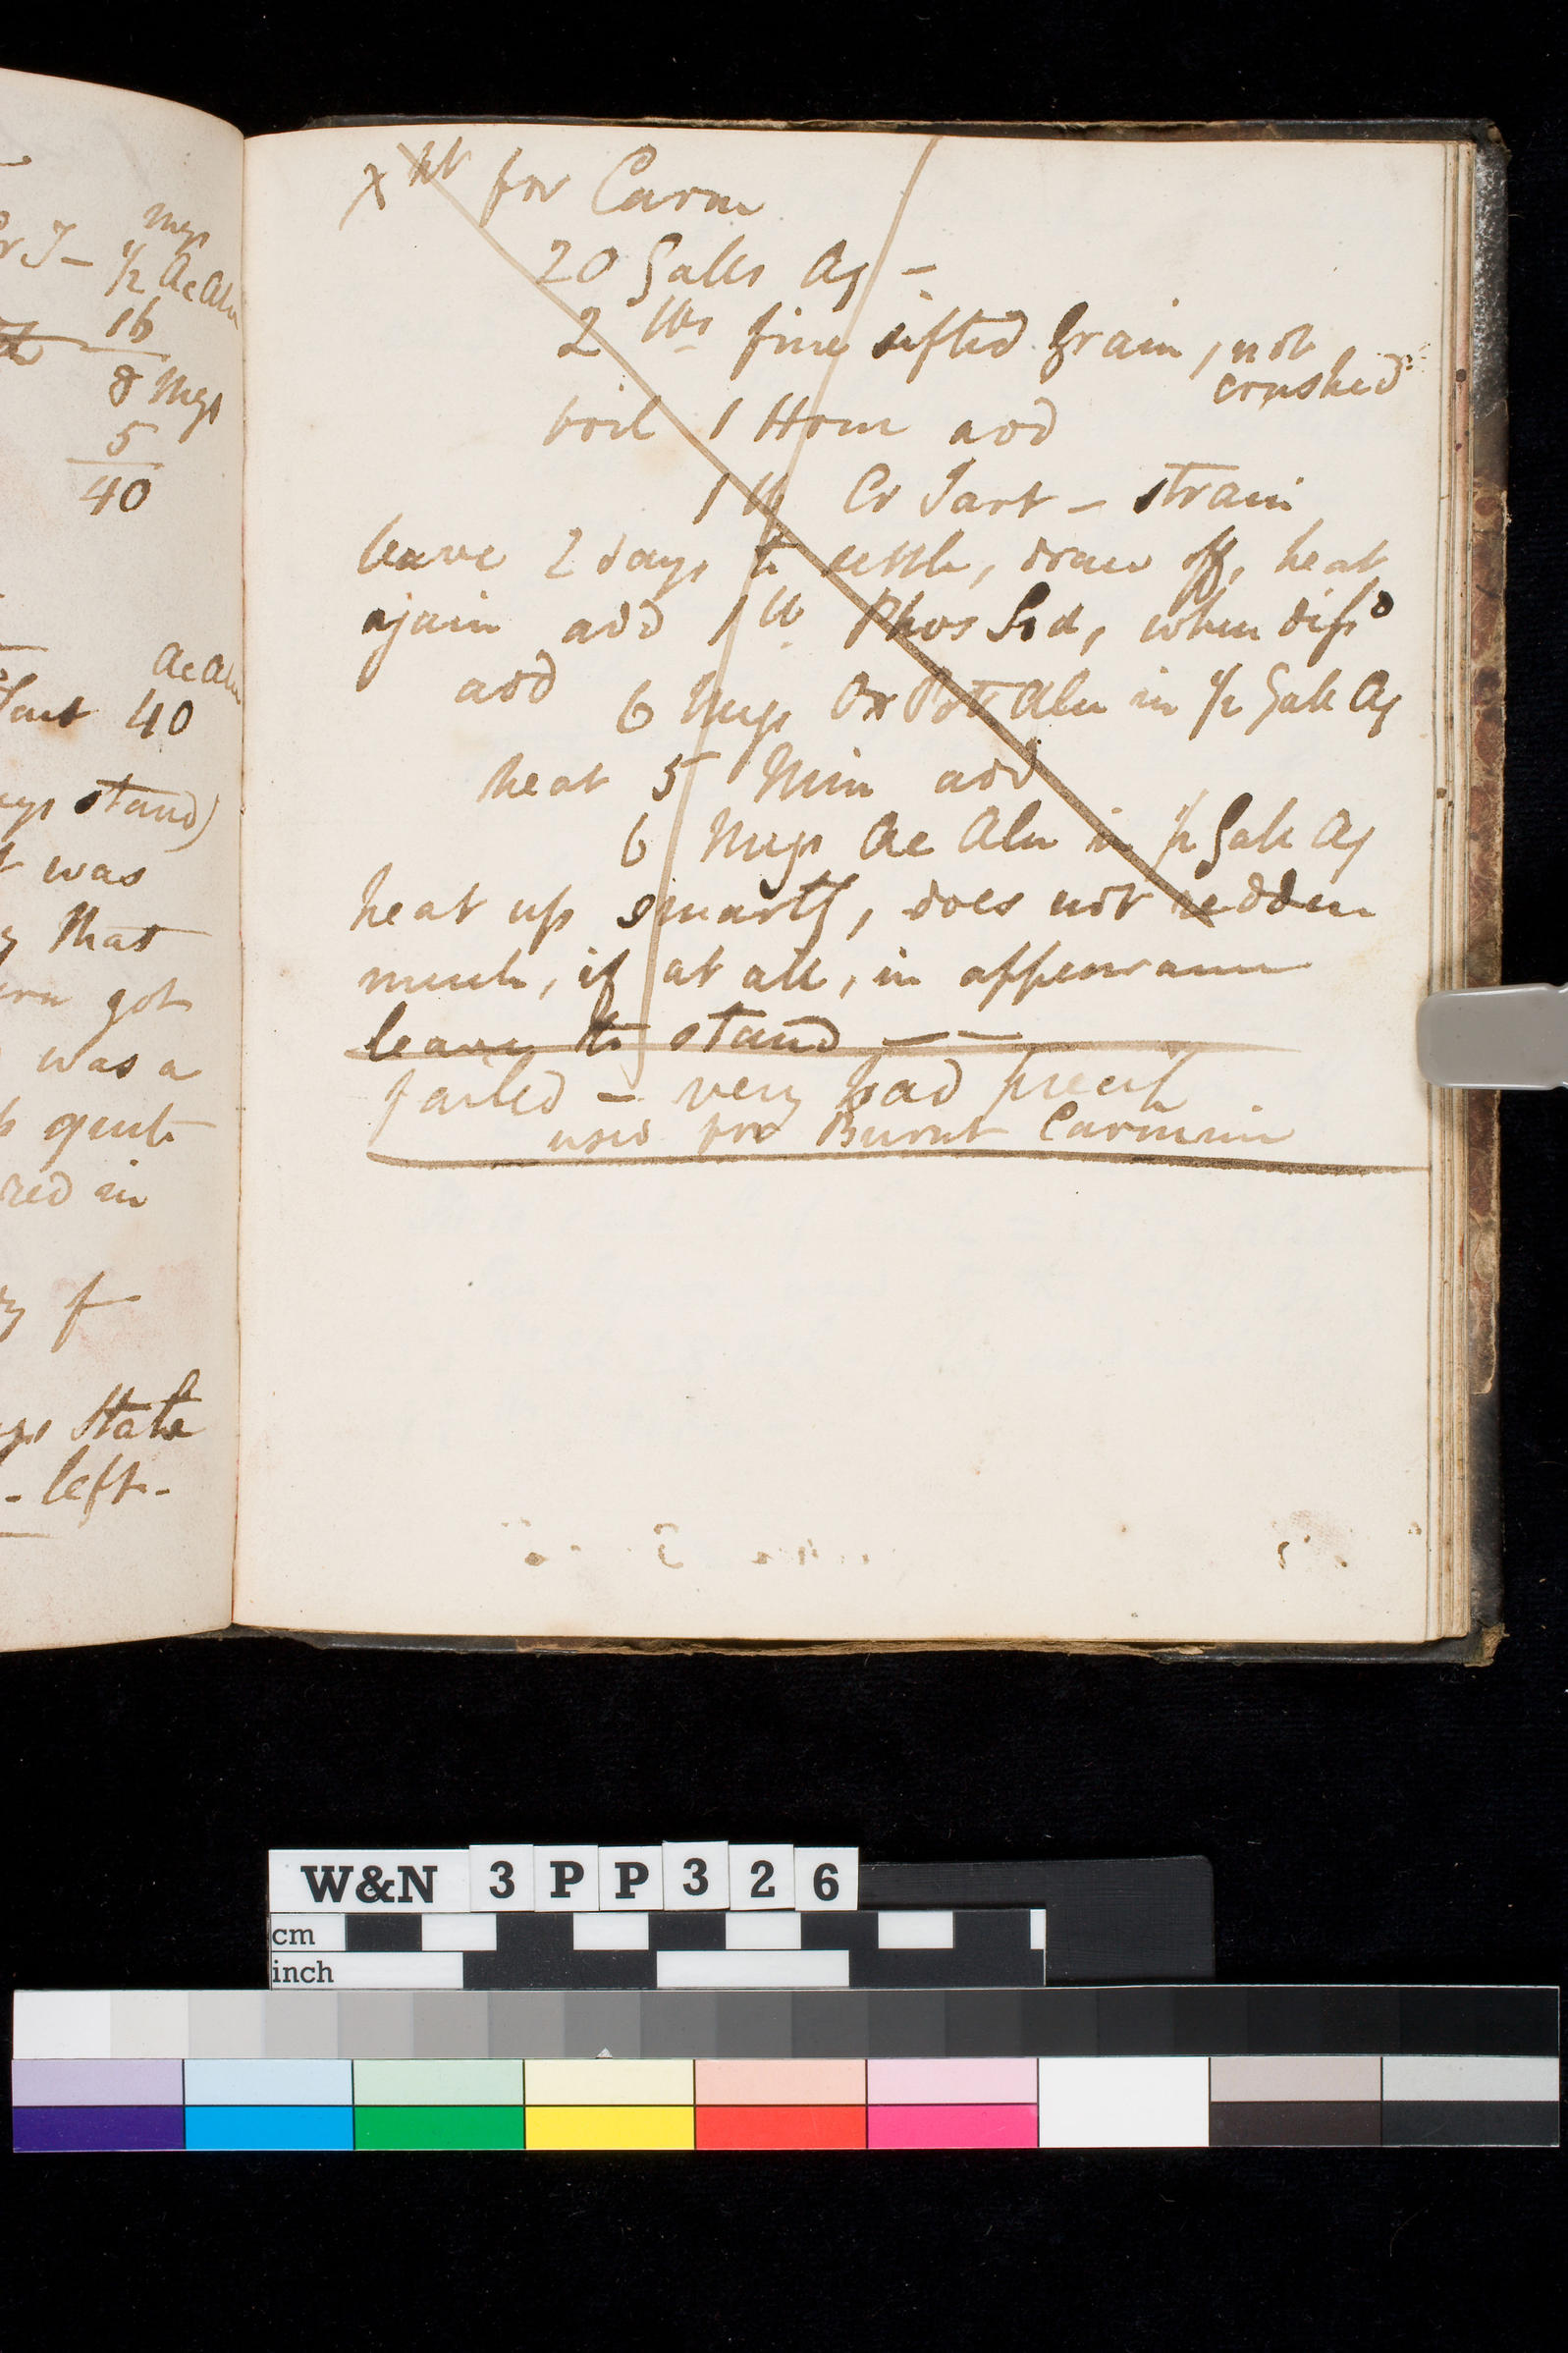 Mgs
r T – 1/2 Ac Alu
16
8 Mgs
5
40
Ac Alu
Tart 40
stand)
was
that
got
was a
quite
red in
f
State
- left -
Xpt for Carm
20 Galls Aq –
2 lbs fine sifted Grain, not
crushed
boil 1 Hour add
1 lb Cr Tart – strain
leave 2 days to settle, draw off, heat
again add 1 lb Phos Sod, when dissd
add 6 Mgs Ox Pot Alu in 1/2 Gall Aq
heat 5 Min add
6 Mgs Ac Alu in 1/2 Gall Aq
heat up smartly, does not redden
much, if at all, in appearance
leave to stand — —
failed – very bad precip
used for Burnt Carmine
W&N 3 P P 3 2 6
cm
inch